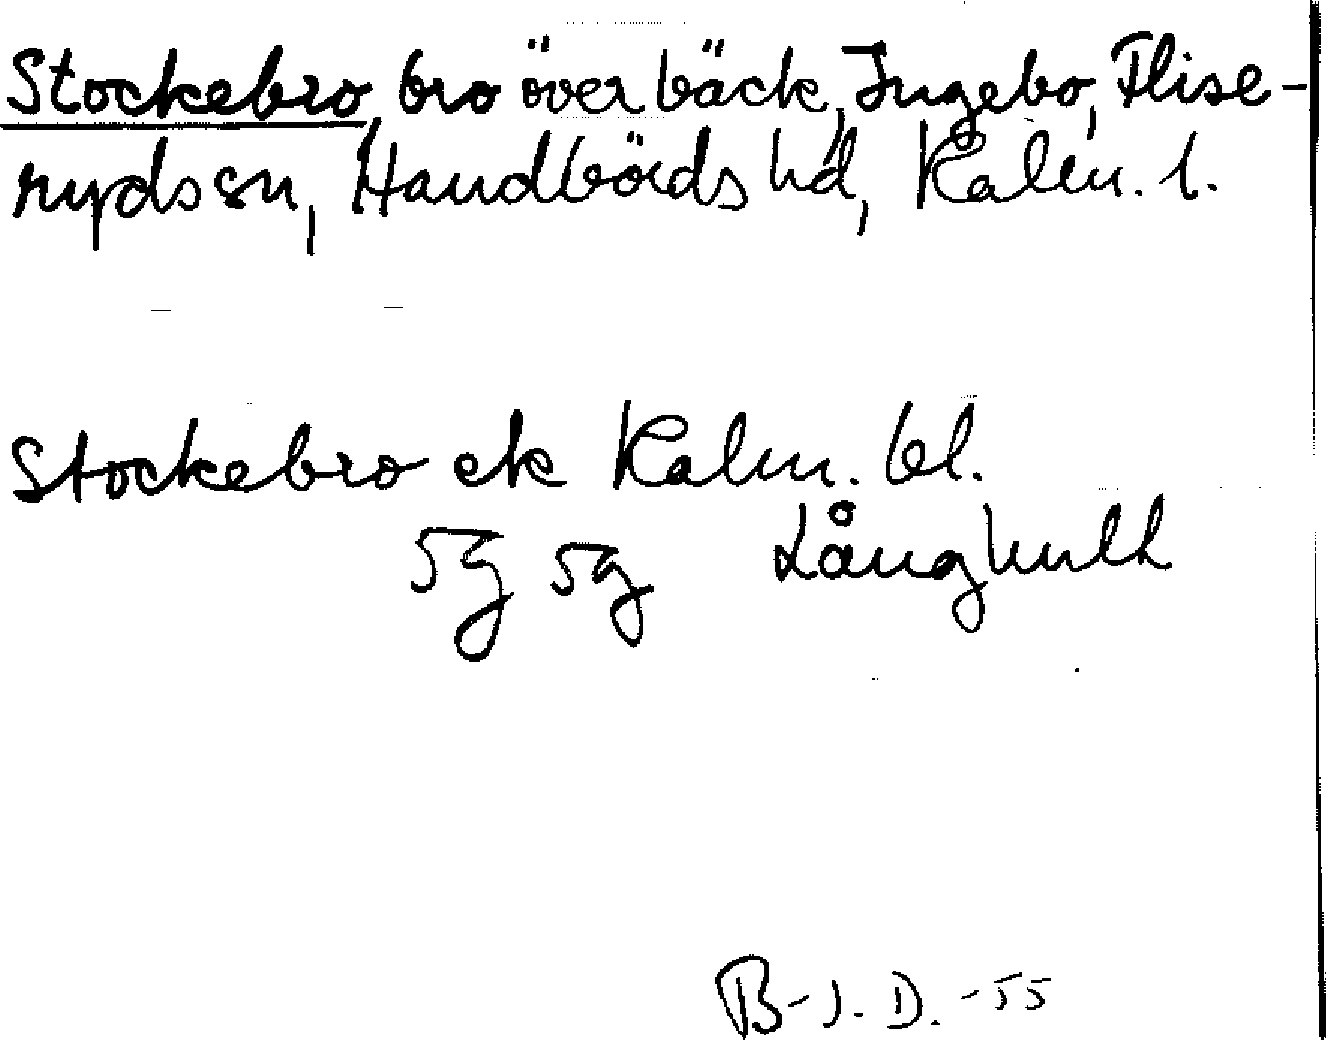 Stockebro, bro över bäck, Ingebo, Flise-
ryds sn, Handbörds hd, Kalm. l.
Stockebro ek Kalm. bl.
5g 5g Långhult
B-J. D. -55